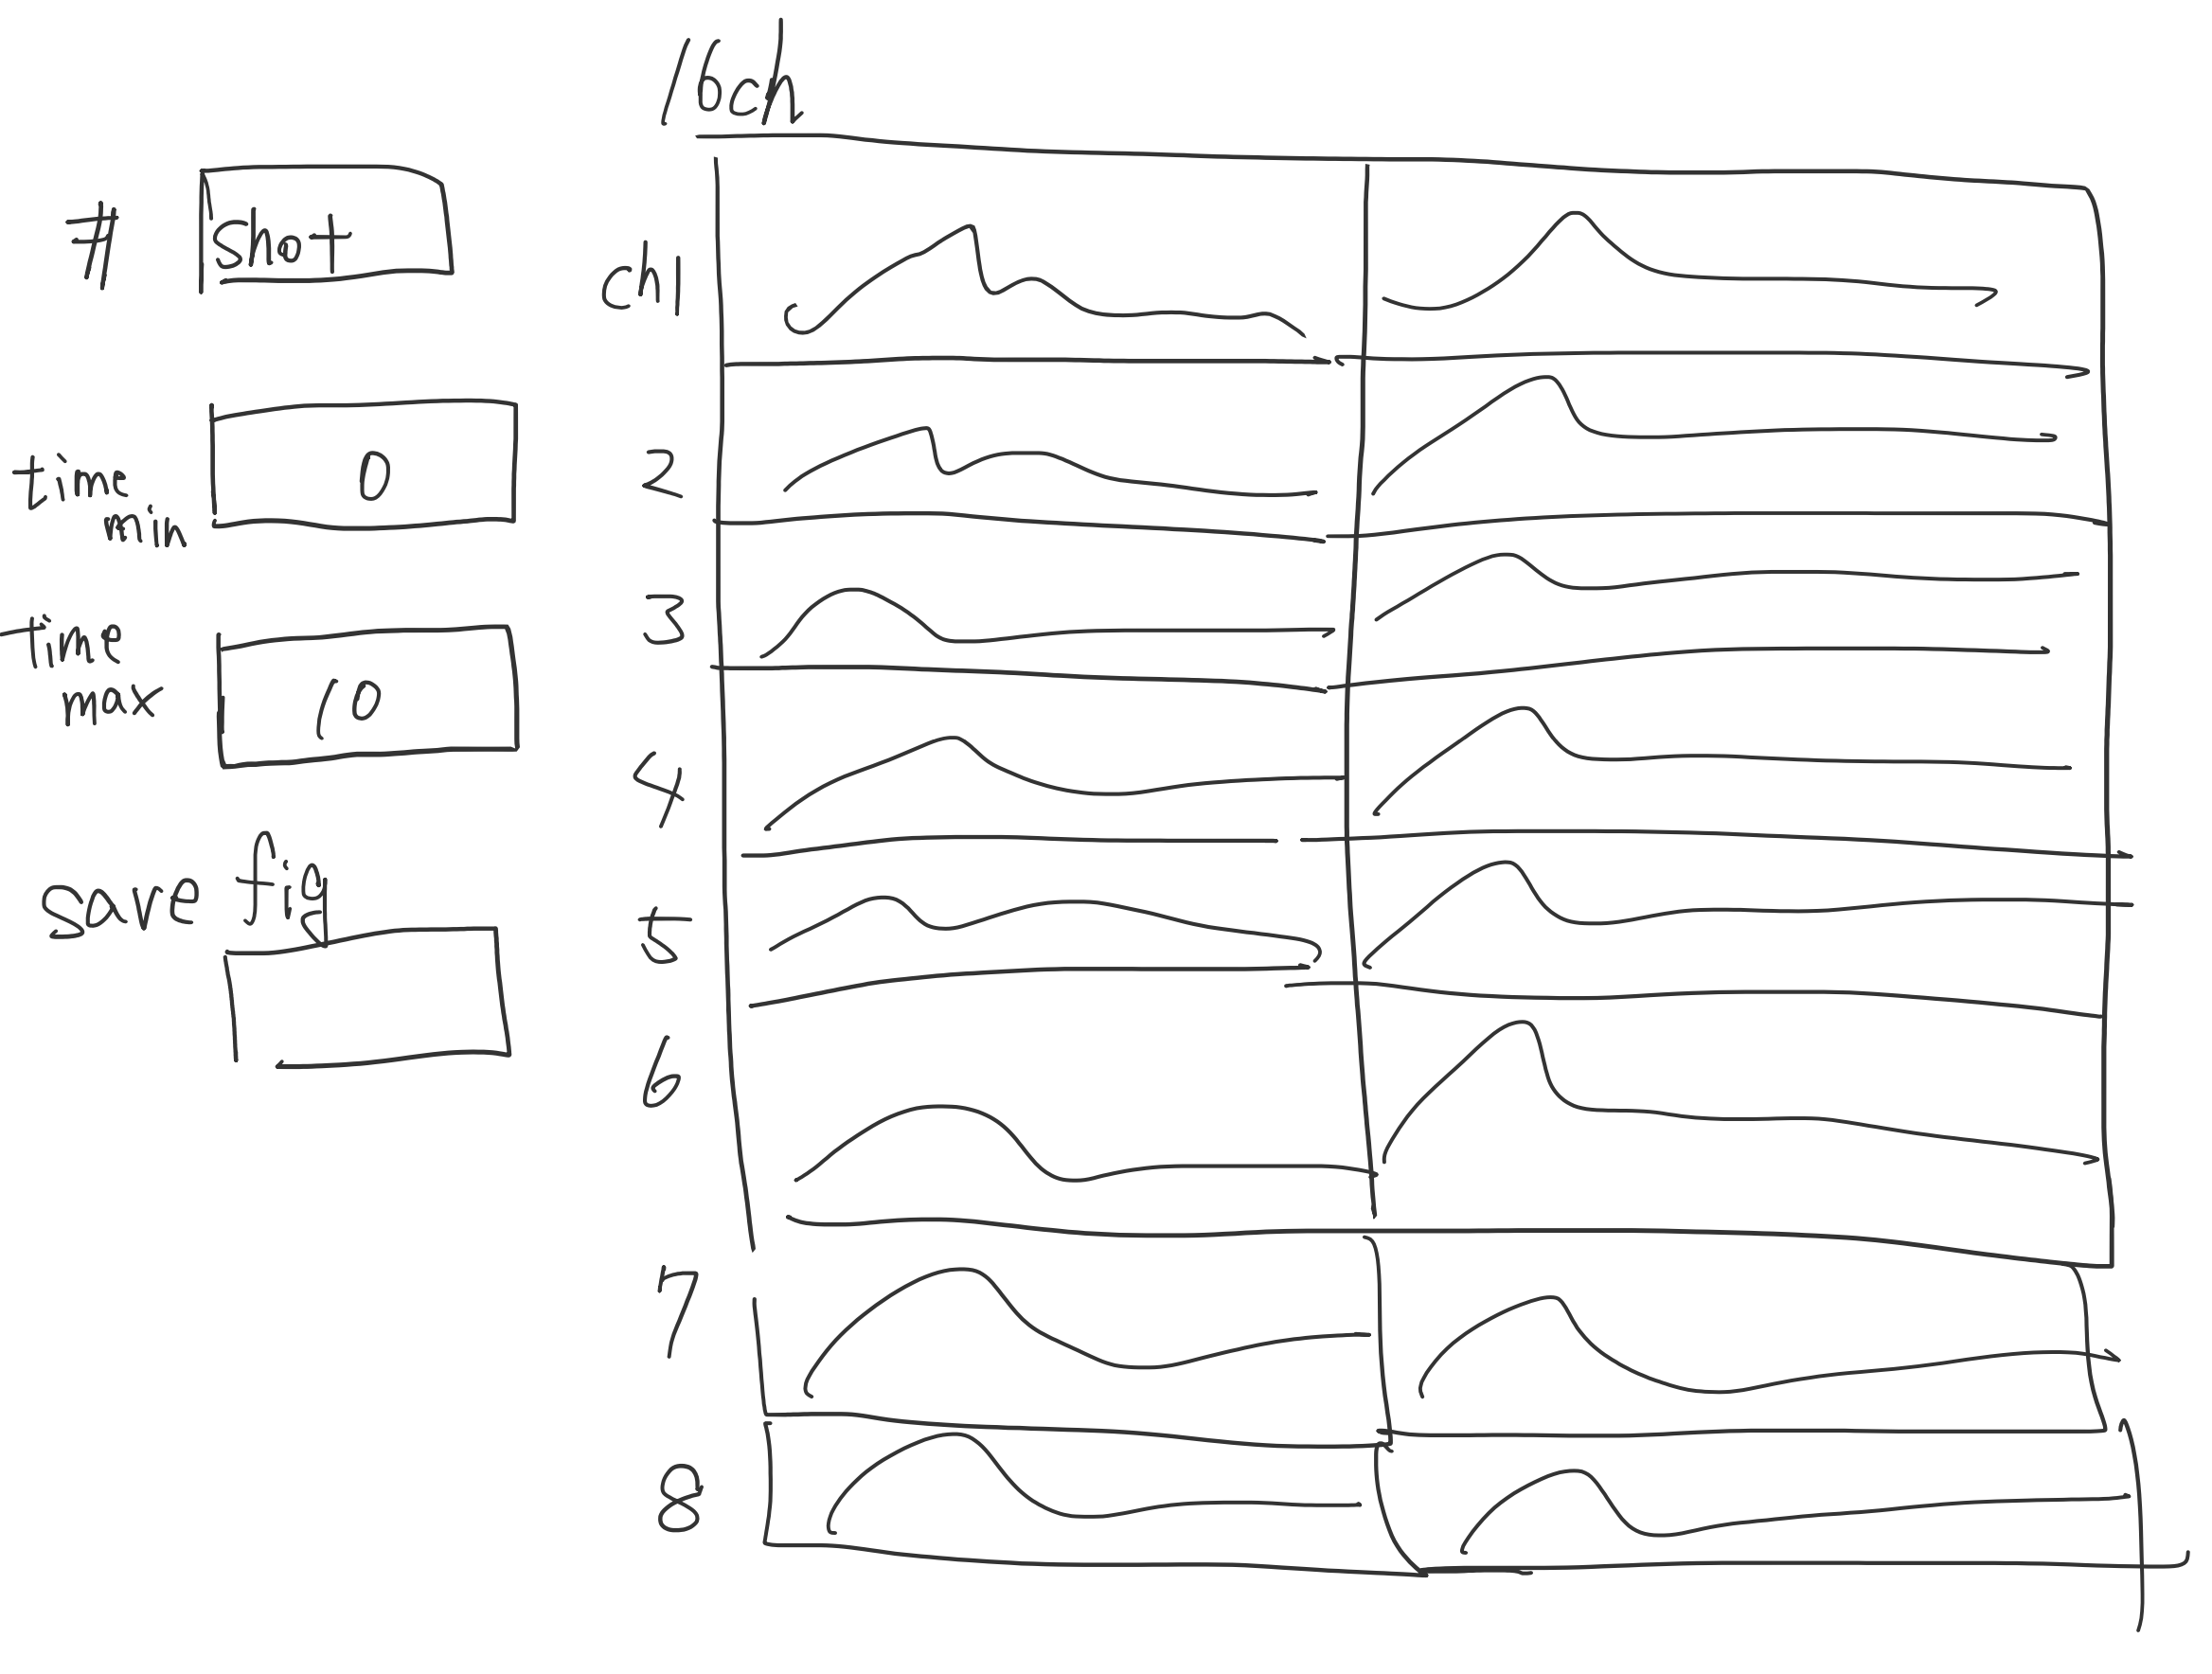 16ch
# shot
time min 0
time max 10
save fig
ch1
2
3
4
5
6
7
8